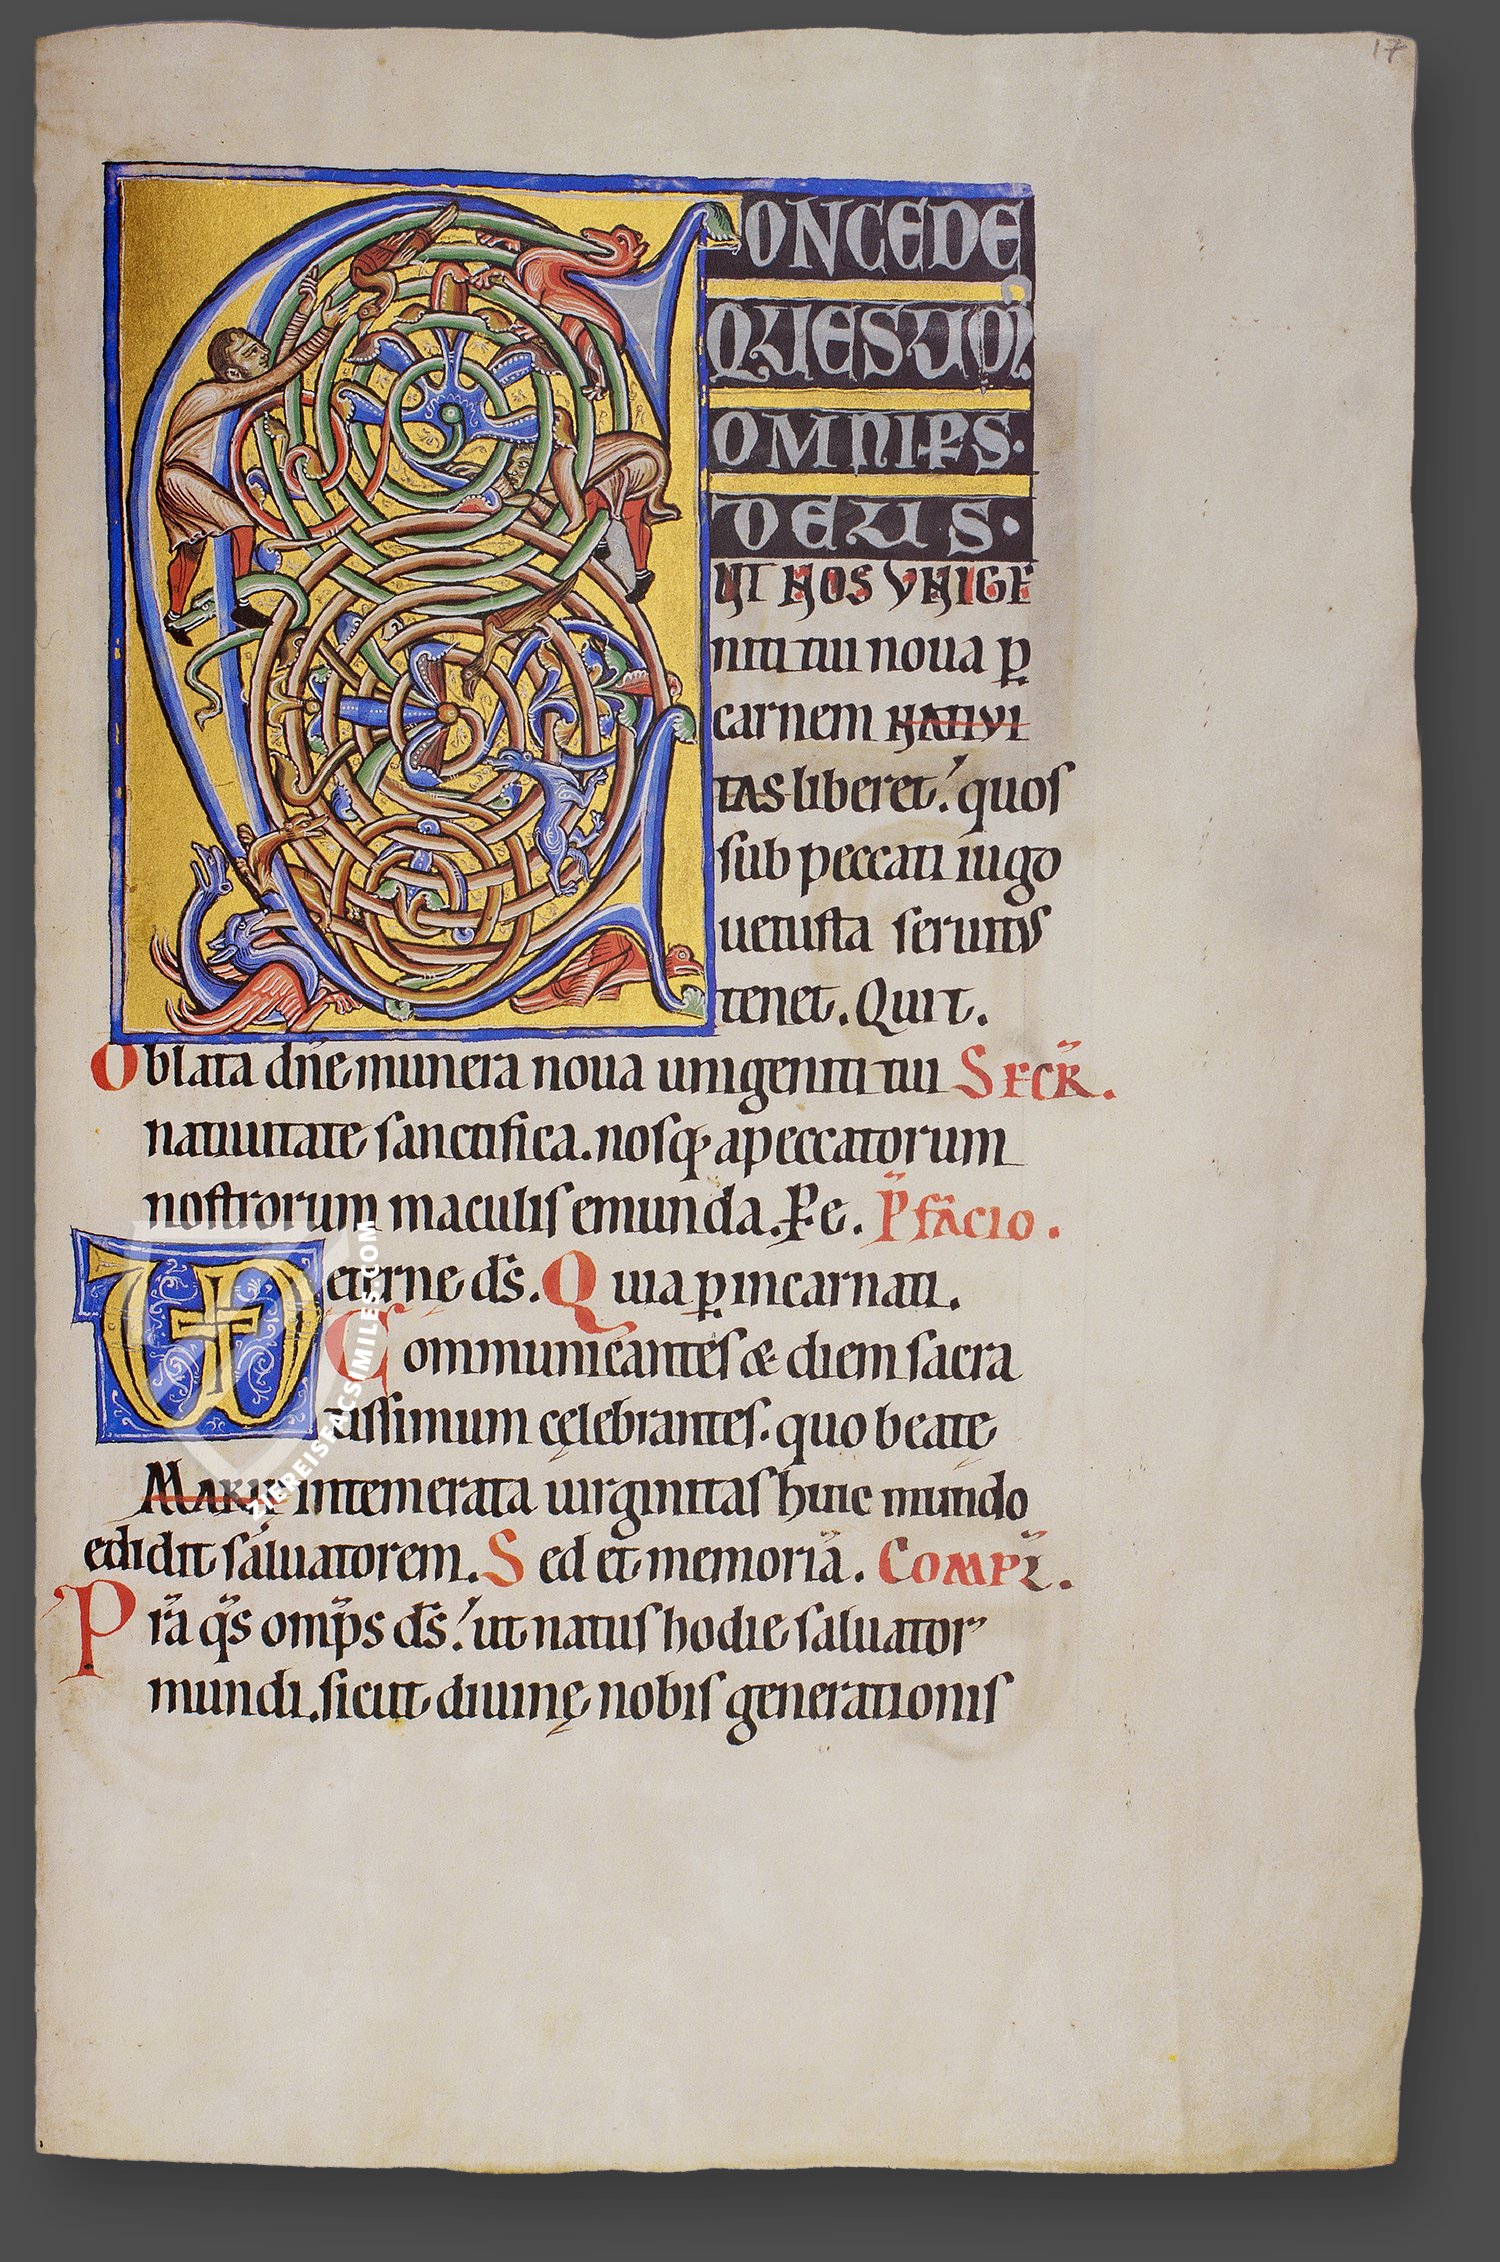 17
CONCEDE
QUESUMꝰ
OMNIP̄S·
DEUS·
UT NOS VNIGE
niti tui noua ꝑ
carnem NATIVI
TAS liberet: quos
sub peccati iugo
uetusta seruitus
tenet. Qui t.
Oblata dn̄e munera noua unigeniti tui SECR̄.
natiuitate sanctifica. nosq; a peccatorum
nostrorum maculis emunda. P̄e. P̄facio.
VD eterne ds̄. Quia ꝑ incarnati.
Communicantes & diem sacra
tissimum cęlebrantes. quo beatę
MARIE intemerata uirginitas huic mundo
edidit saluatorem. Sed et memoriā. COMPL̄.
Pr̄a qs̄ omp̄s ds̄: ut natus hodie saluator
mundi. sicut diuinę nobis generationis
ZIEREISFACSIMILES.COM